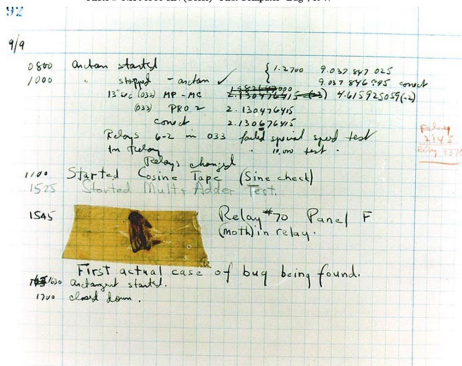 92
9/9
0800 antan started
1000 " stopped - antan ✓ { 1.2700 9.037 847 025
9.037 846 995 correct
13" uc (032) MP - MC 2.130476415 (-3) 4.615925059 (-2)
(033) PRO 2 2.130476415
correct 2.130676415
Relays 6-2 in 033 failed special speed test
In Relay " 10,000 test.
Relay
2145
Relay 3370
Relays changed
1100 Started Cosine Tape (Sine check)
1525 Started Mult+ Adder Test.
1545 Relay #70 Panel F
(moth) in relay.
First actual case of bug being found.
1630 antangent started.
1700 closed down.